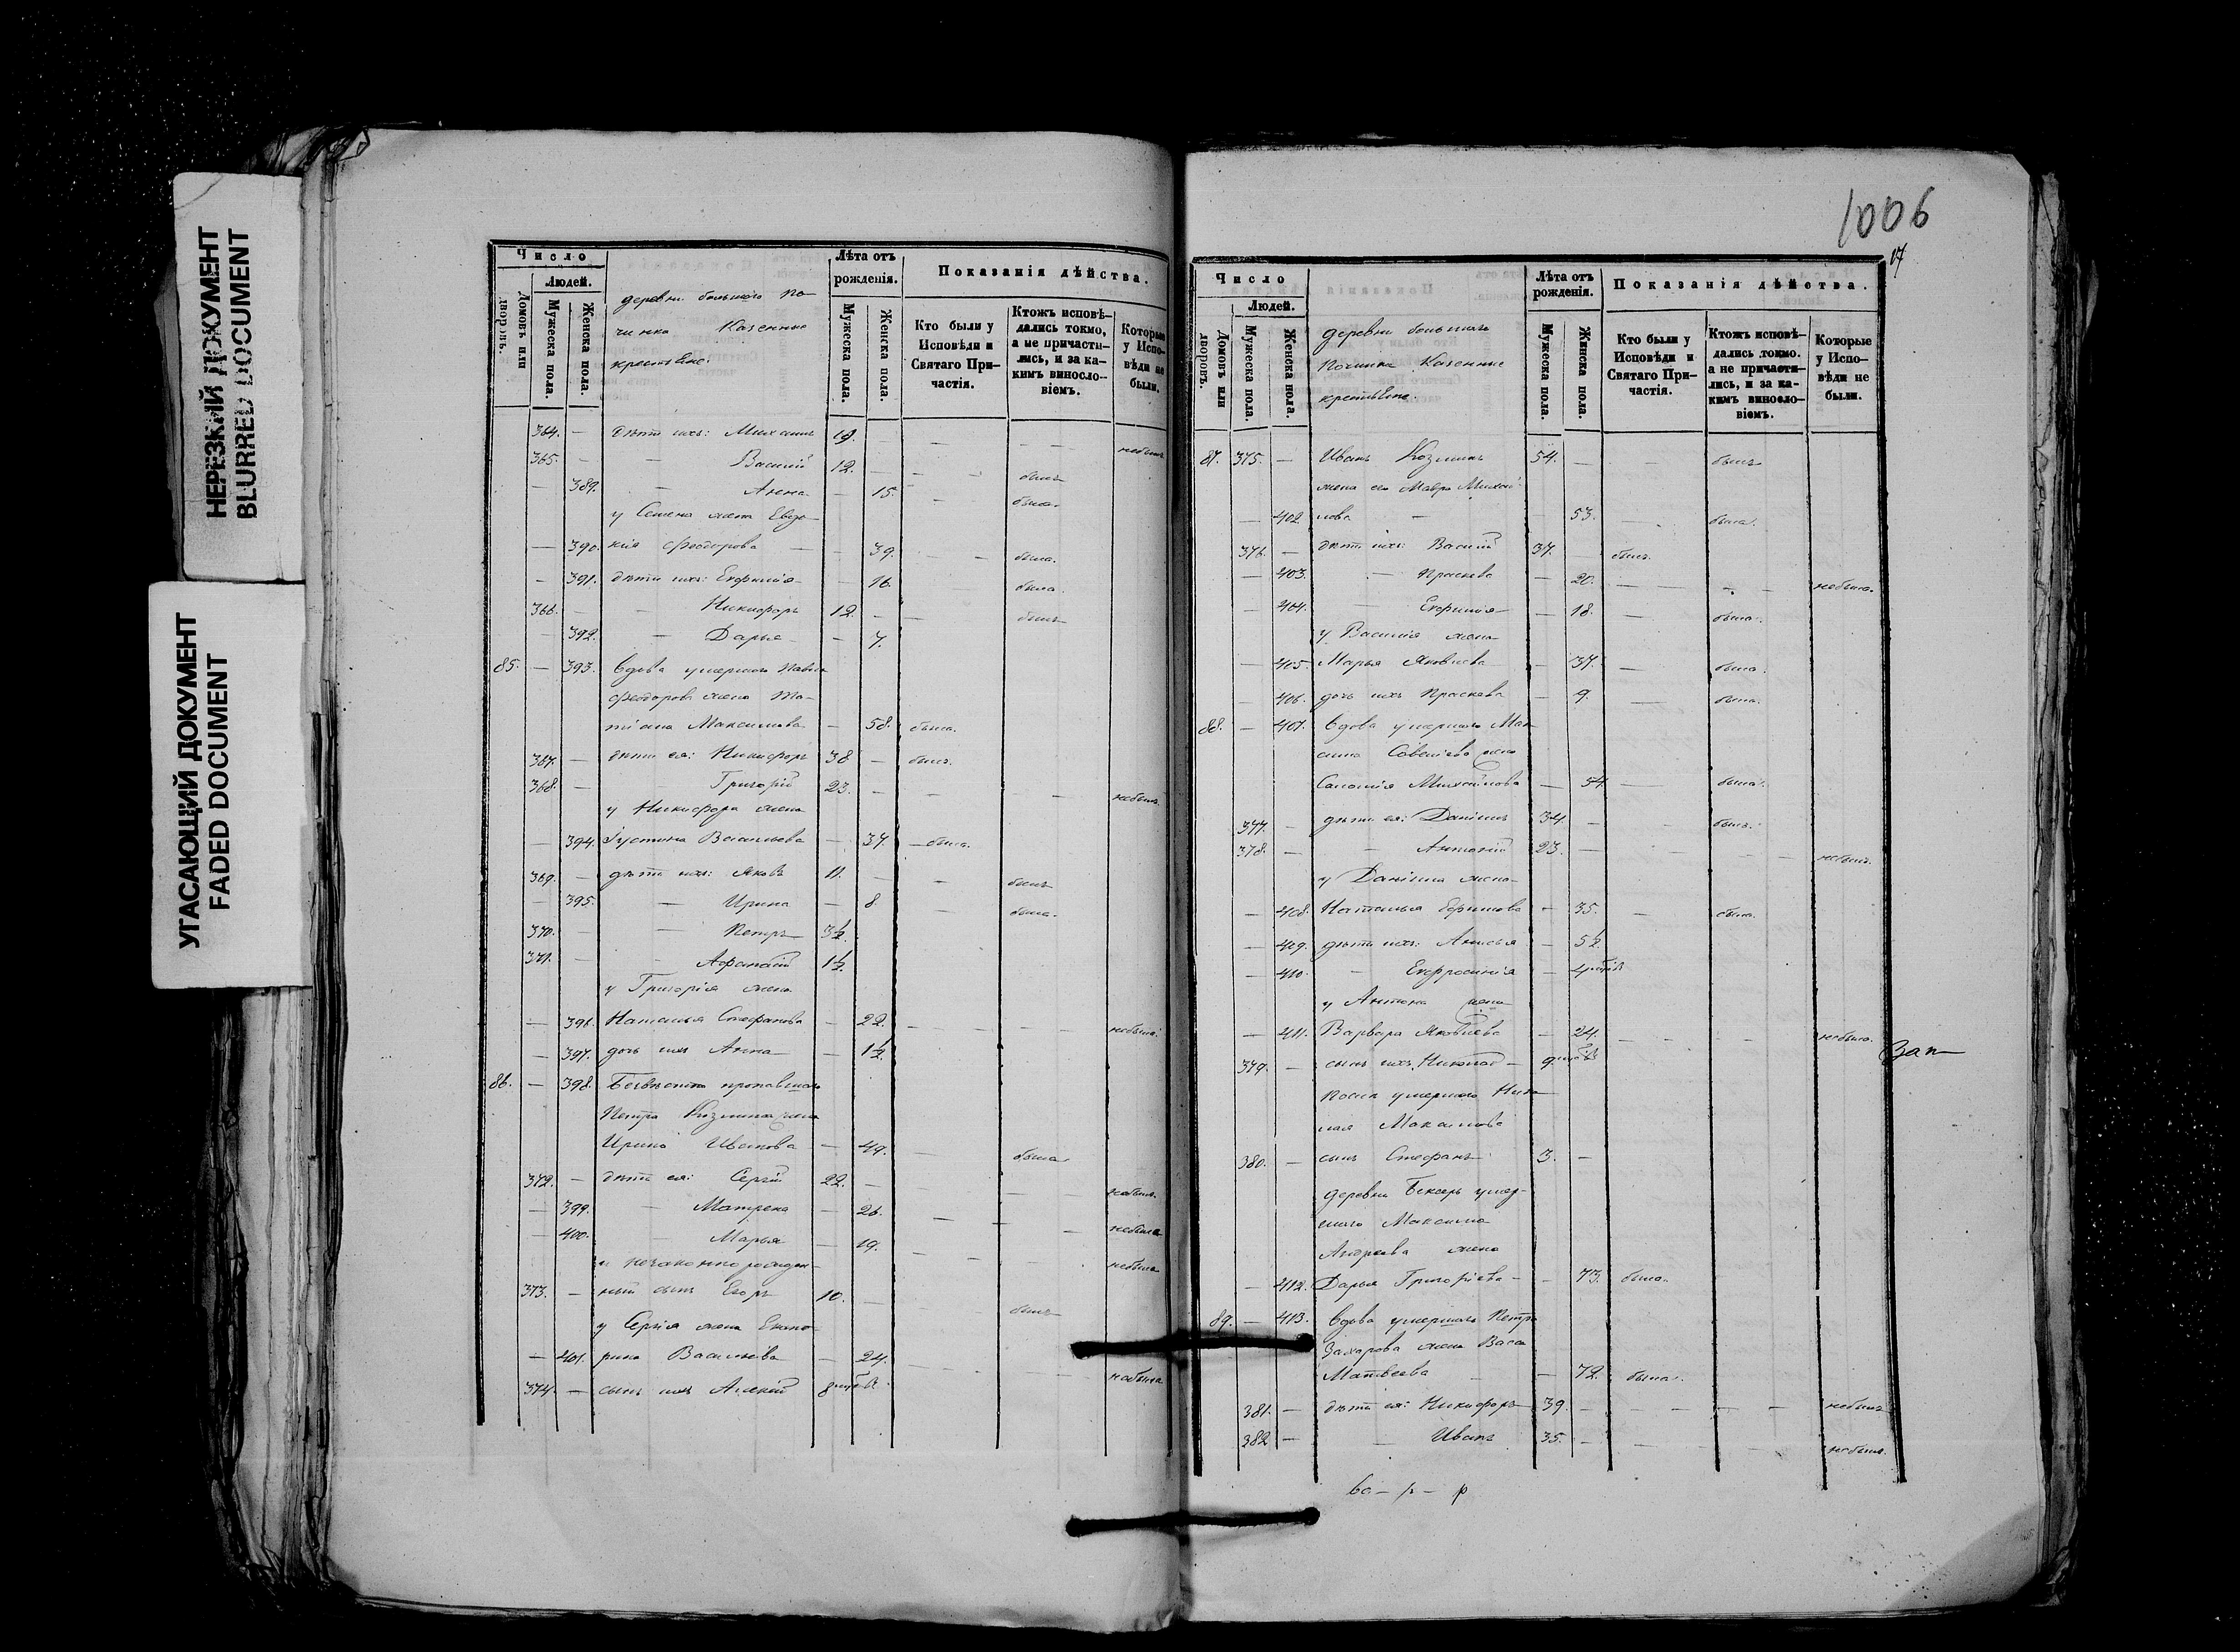 НЕРЕЗКИЙ ДОКУМЕНТ
BLURRED DOCUMENT
УГАСАЮЩИЙ ДОКУМЕНТ
FADED DOCUMENT
Число
Людей.
Домовъ или дворовъ.
Мужеска пола.
Женска пола.
деревни большаго По-
чинка Казенные
крестьяне:
Лѣта отъ рожденія.
Мужеска пола.
Женска пола.
Показанія дѣйства.
Кто были у Исповѣди и Святаго Причастія.
Ктожъ исповѣдались токмо, а не причастились, и за какимъ винословіемъ.
Которые у Исповѣди не были.
364. — дѣти ихъ: Михаилъ 19. — — — — небылъ
365. — — Василій 12. — — — былъ
— 389. — Анна — 15. — была.
у Семена жена Евдо-
— 390. кія Феодорова — — 39. — — была.
— 391. дѣти ихъ: Евфимія — — 16. была.
366. — — Никифоръ 12. — — былъ
— 392. — Дарья — — 7.
85. — 393. Вдова умершаго Павла
Феодорова жена Та-
тіана Максимова — 58. была.
367. — дѣти ея: Никифоръ 38 — былъ.
368. — — Григорій 23. — — — — небылъ
у Никифора жена
— 394. Іустина Васильева — 37. — была.
369. — дѣти ихъ: Яковъ 11. — — былъ
— 395. — Ирина — 8. — была.
370. — — Петръ 3½.
371. — — Афанасій 1½.
у Григорія жена
— 396. Наталья Стефанова — 22. — — — — небыла.
— 397. дочь ихъ Анна — — 1½.
86. — 398. Безвѣстно пропавшаго
Петра Козмина жена
Ирина Иванова — 49. — была.
372. — дѣти ея: Сергій 22. — — — небылъ.
— 399. — Матрена — 26. — — — небыла
— 400. — Марья — 19. — — — небыла
и незаконнорожден-
373. — ный сынъ Егоръ 10. — — былъ
у Сергія жена Екате-
— 401. рина Васильева — 24. — — — небыла
374. — сынъ ихъ Алексій 8
1006
17
Число
Людей.
Домовъ или дворовъ.
Мужеска пола.
Женска пола.
деревни большаго
Починка Казенные
крестьяне.
Лѣта отъ рожденія.
Мужеска пола.
Женска пола.
Показанія дѣйства.
Кто были у Исповѣди и Святаго Причастія.
Ктожъ исповѣдались токмо. а не причастились, и за какимъ винословіемъ.
Которые у Исповѣди не были.
87. 375. — Иванъ Козминъ 54. — — былъ
жена его Мавра Михай-
— 402. лова — 53. — была.
376. — дѣти ихъ: Василій 37. былъ.
— 403. — Праскева — 20. — — — — небыла.
— 404. — Евфимія — 18. — была.
у Василія жена
— 405. Марья Яковлева — 37. — была.
— 406. дочь ихъ Праскева — 9. была.
88. — 407. Вдова умершаго Мак
сима жена
Саломія Михайлова — 54 — была.
377. — дѣти ея: Даніилъ 34. — — былъ.
378. — — Антоній 23. — — — небылъ.
у Даніила жена
— 408. Наталья Ефимова — 35. — была.
— 409. дѣти ихъ: Анисья — 5½.
— 410. — Евфросинія — 4
у Антона жена
— 411. Варвара Яковлева — 24. — — — небыла.
379. — сынъ ихъ Николай — 9
Послѣ умершаго Нико
лая Максимова
380. — сынъ Стефанъ 3. —
деревни умер-
шаго Максима
Андреева жена
— 412. Дарья Григорьева — — 73. была.
89. — 413. Вдова умершаго Петра
Захарова жена Васса
Матвеева — — 72. была.
381. — дѣти ея: Никифоръ 39. — — — — небылъ
382 — — Иванъ 35. — — небылъ.
Зап—